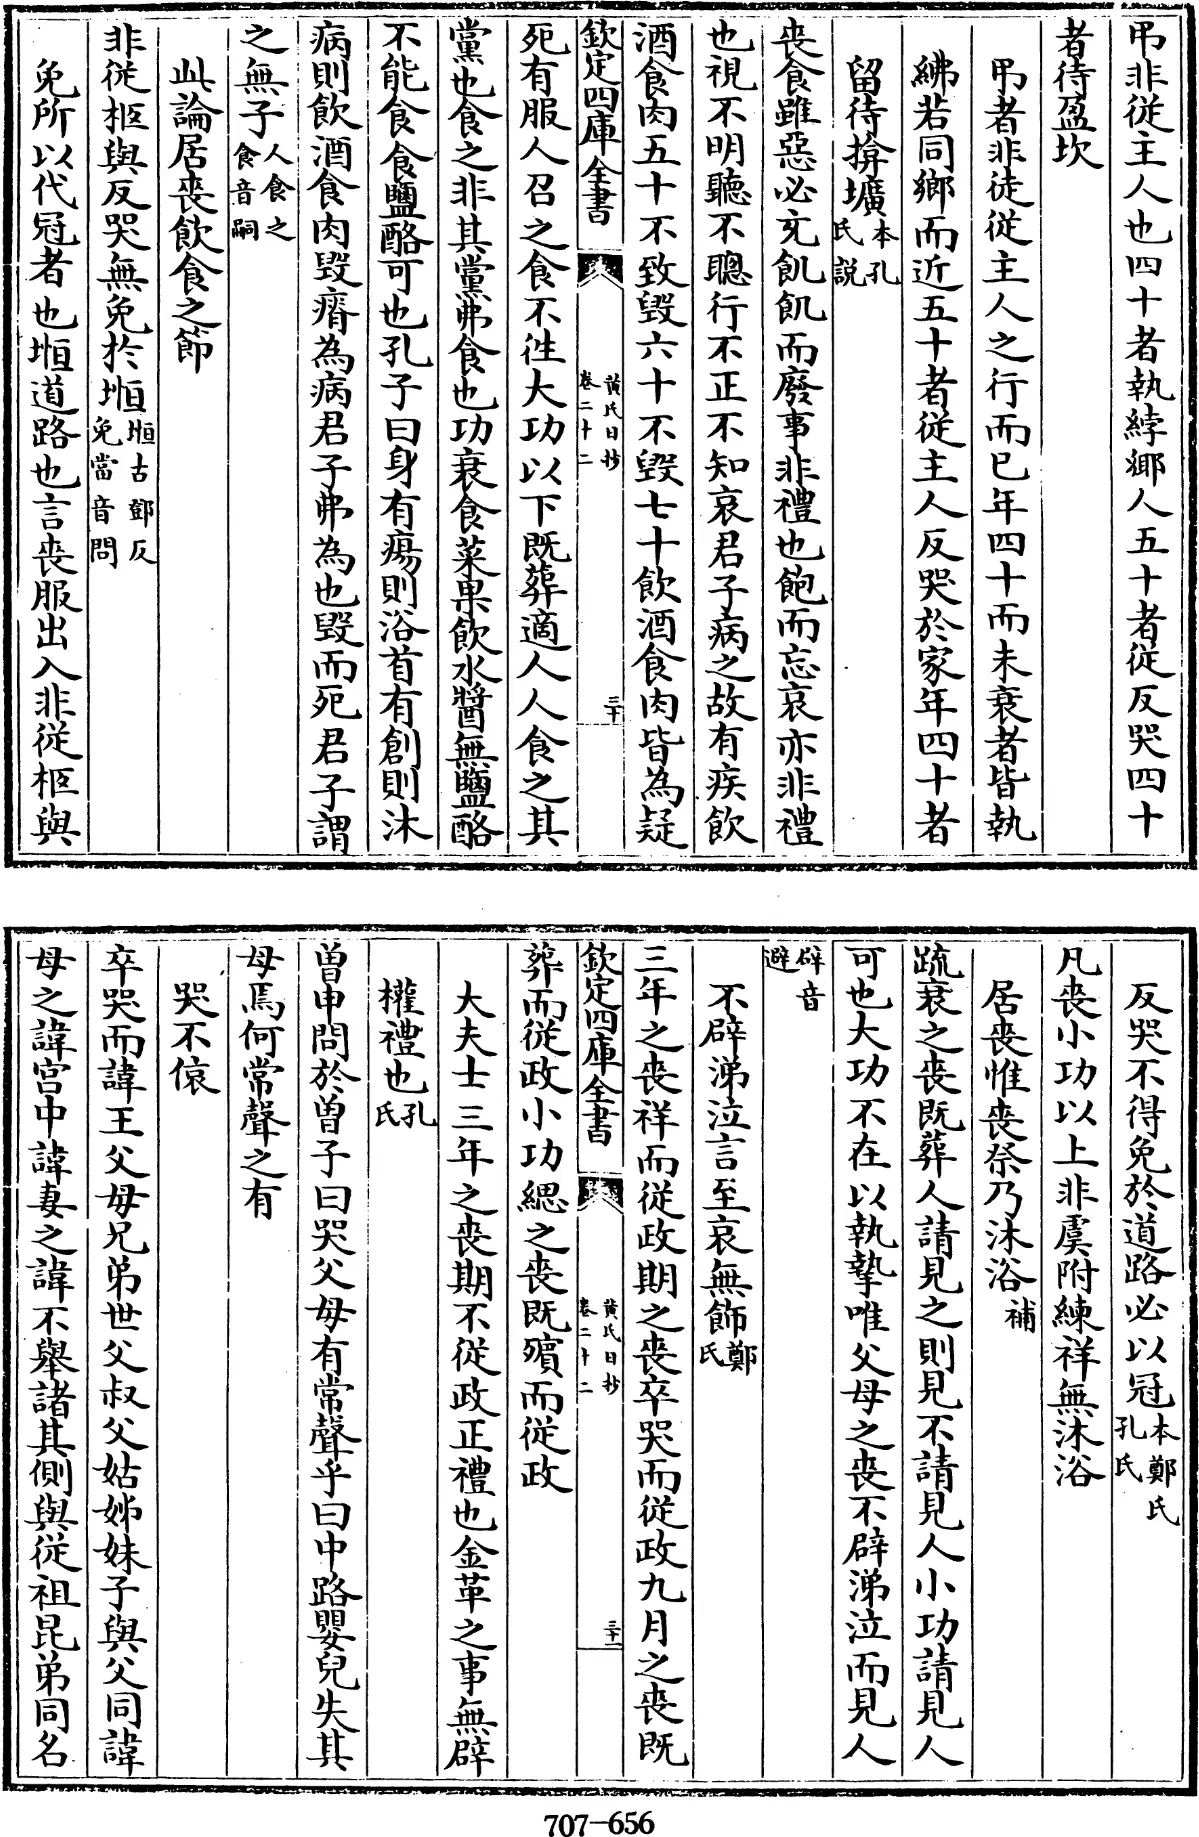 弔非從主人也四十者執綍鄉人五十者從反哭四十
者待盈坎
弔者非徒從主人之行而已年四十而未衰者皆執
紼若同鄉而近五十者從主人反哭於家年四十者
留待揜壙本孔氏說
喪食雖惡必充飢飢而廢事非禮也飽而忘哀亦非禮
也視不明聽不聰行不正不知哀君子病之故有疾飲
酒食肉五十不致毀六十不毀七十飲酒食肉皆為疑
欽定四庫全書 黃氏日抄 卷二十二 三十
死有服人召之食不往大功以下既葬適人人食之其
黨也食之非其黨弗食也功衰食菜果飲水醬無鹽酪
不能食食鹽酪可也孔子曰身有瘍則浴首有創則沐
病則飲酒食肉毀瘠為病君子弗為也毀而死君子謂
之無子人食之食音嗣
此論居喪飲食之節
非從柩與反哭無免於堩堩古鄧反免當音問
免所以代冠者也堩道路也言喪服出入非從柩與
反哭不得免於道路必以冠本鄭氏孔氏
凡喪小功以上非虞附練祥無沐浴
居喪惟喪祭乃沐浴補
疏衰之喪既葬人請見之則見不請見人小功請見人
可也大功不在以執摯唯父母之喪不辟涕泣而見人
辟音避
不辟涕泣言至哀無飾鄭氏
三年之喪祥而從政期之喪卒哭而從政九月之喪既
欽定四庫全書 黃氏日抄 卷二十二 三十一
葬而從政小功緦之喪既殯而從政
大夫士三年之喪期不從政正禮也金革之事無辟
權禮也孔氏
曾申問於曾子曰哭父母有常聲乎曰中路嬰兒失其
母焉何常聲之有
哭不偯
卒哭而諱王父母兄弟世父叔父姑姊妹子與父同諱
母之諱宮中諱妻之諱不舉諸其側與從祖昆弟同名
707-656